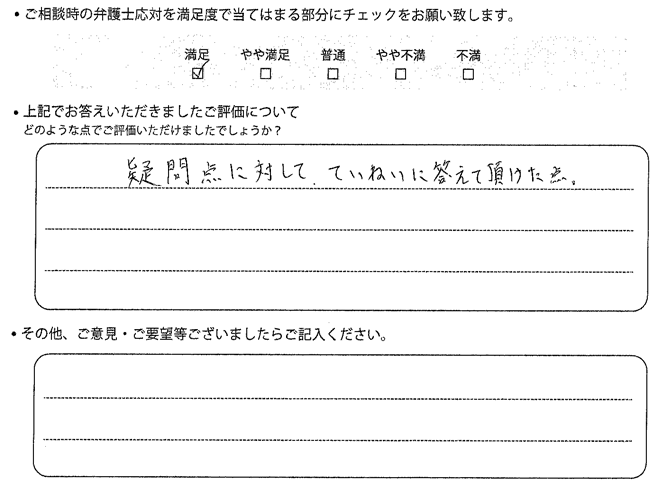 ・ご相談時の弁護士応対を満足度で当てはまる部分にチェックをお願い致します。
満足 やや満足 普通 やや不満 不満
☑ □ □ □ □
・上記でお答えいただきましたご評価について
どのような点でご評価いただけましたでしょうか？
疑問点に対して、ていねいに答えて頂けた点。
・その他、ご意見・ご要望等ございましたらご記入ください。